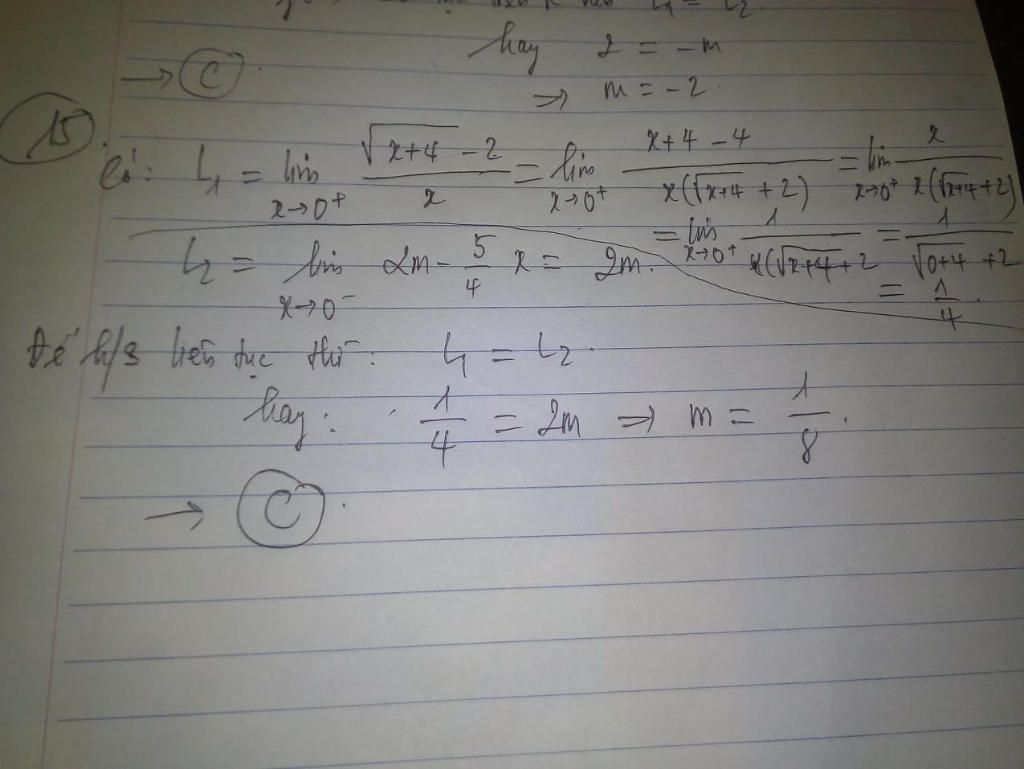 L₁ = L₂
hay 2 = -m
→ C.
⇒ m = -2.
15.
Có: L₁ = lim x→0⁺ (√(x+4) - 2)/x = lim x→0⁺ (x+4-4)/(x(√(x+4) + 2)) = lim x→0⁺ x/(x(√(x+4) + 2))
= lim x→0⁺ 1/(√(x+4) + 2 = 1/(√(0+4) + 2)
= 1/4.
L₂ = lim x→0⁻ 2m - 5/4 x = 2m.
Để h/s liên tục thì: L₁ = L₂.
hay: 1/4 = 2m ⇒ m = 1/8.
→ C.